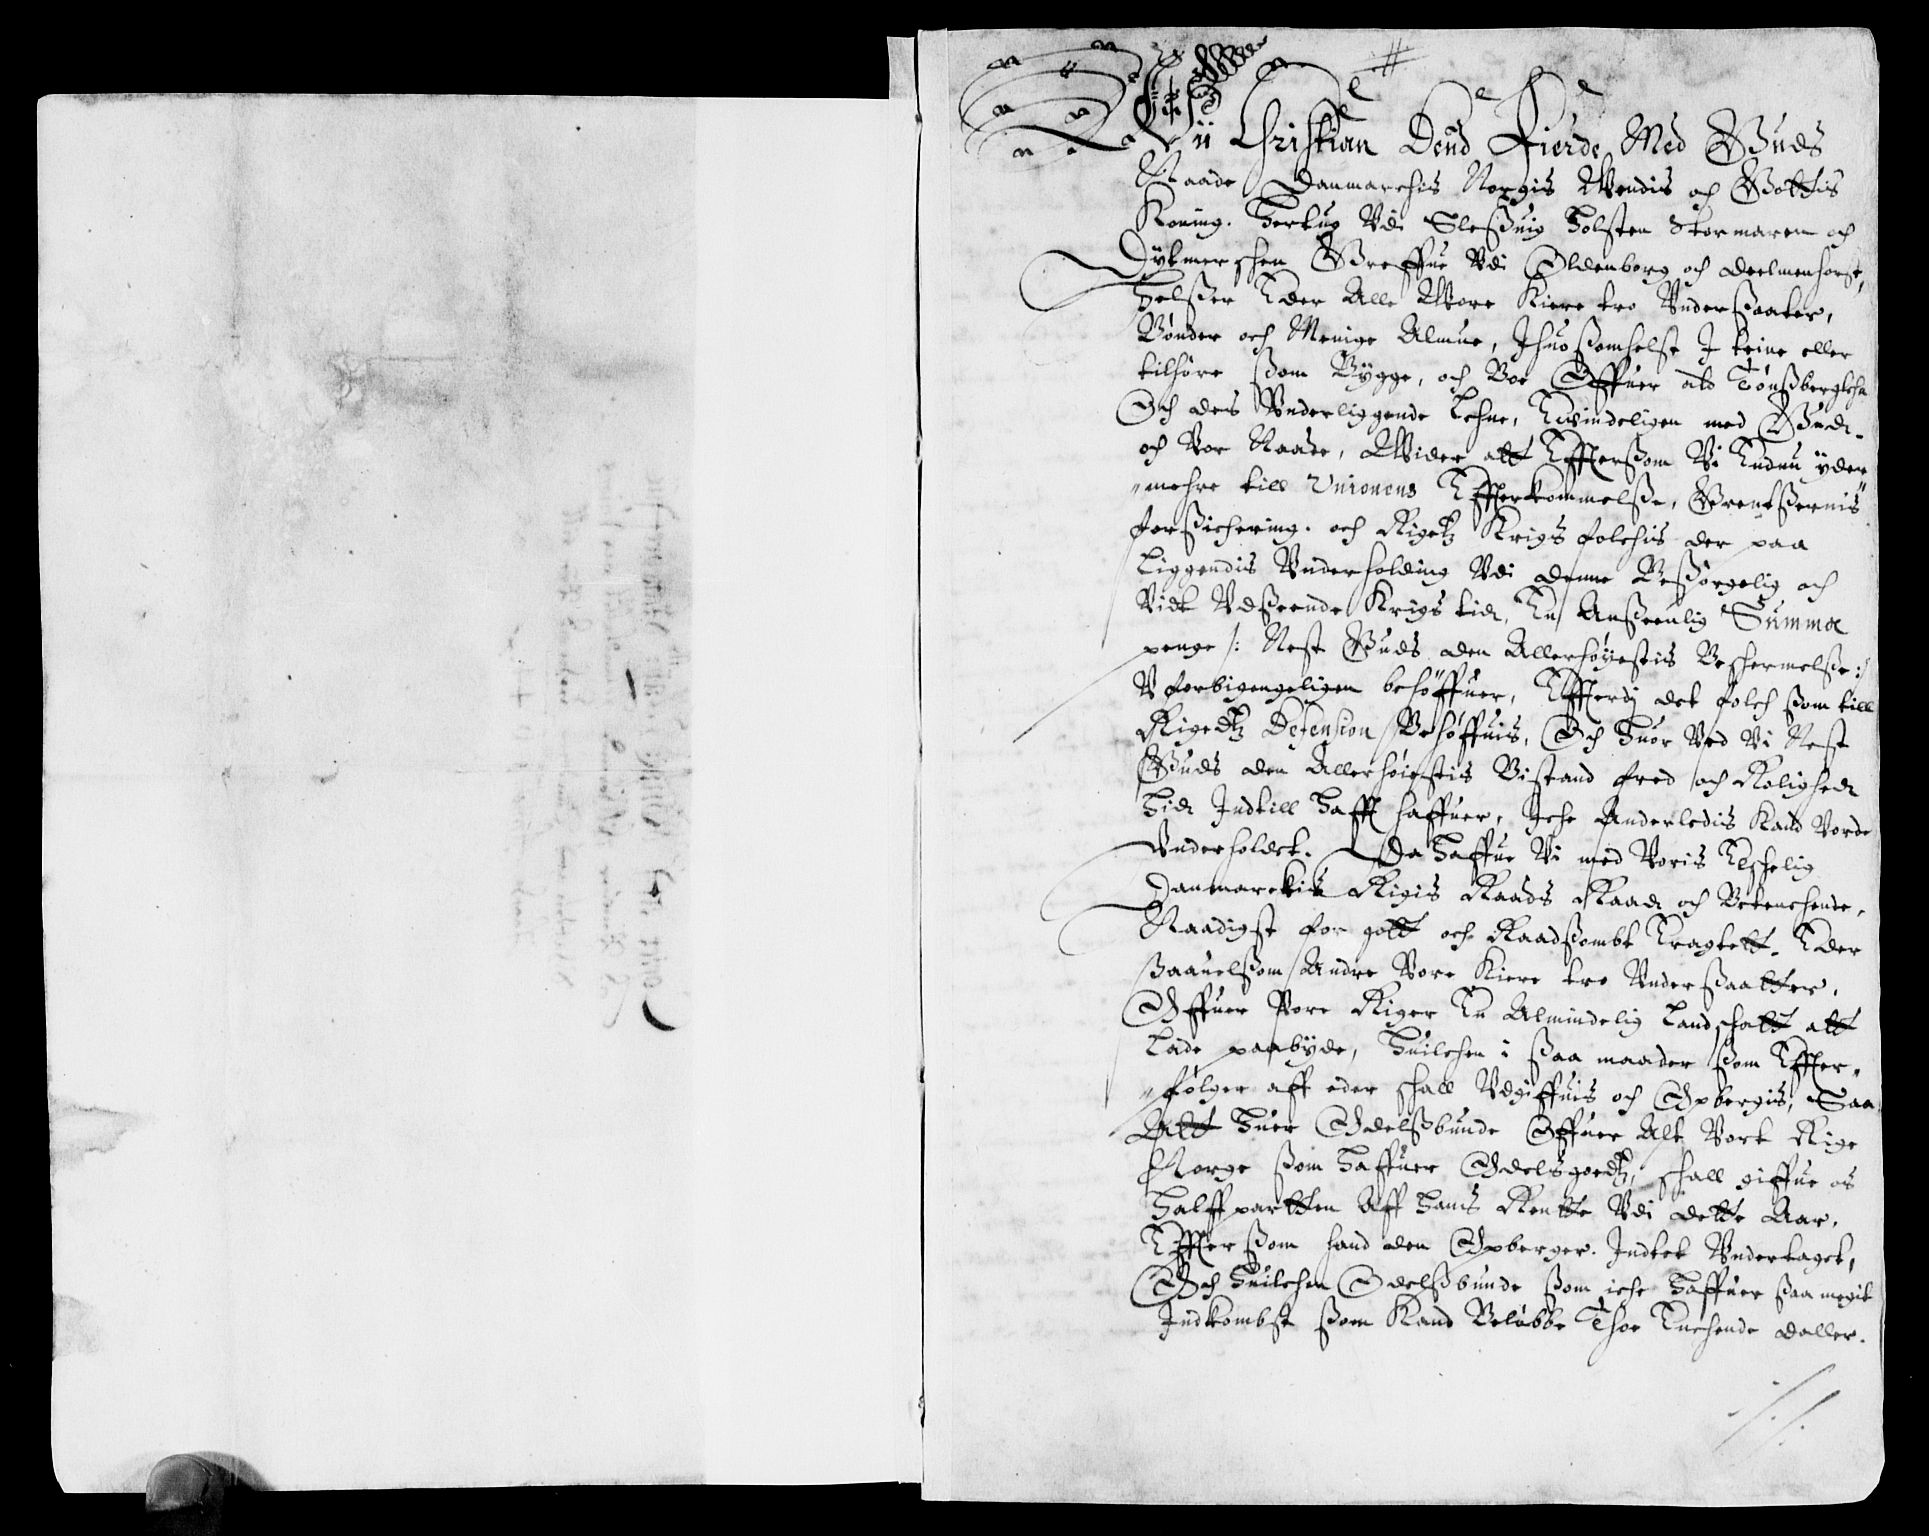 Wii Christian Dend Fierde, Med Guds
Naade Danmarchis Norgis Wendis och Gottis
Koning. Hertug Vdi Sleßuig Holsten Stormaren och
Dytmerschen Greffue Vdi Oldenborg och Deelmenhorst,
Helßer Eder Alle Wore Kiere tro Vnderßaater,
Bønder och Menige Almue, Ihuo ßomhelst I teine eller
tilhøre ßom Bygge, och Boe Offuer ald Tønßberglehn
Och des Vnderliggende Lehne, Euindeligen med Gud.
och Vor Naade, Wider att Effterßom Vi Endnu ÿder
mehre till Unionens Effterkommelße, Grentßernis
forßichering. och Rigetz Krigs folchis der paa
Liggendis Vnderholding Vdi denne Beßørgelig och
Vidt Vdßeende Krigs tid, En Anßeenlig Summa
penge /: Nest Guds den Allerhøyestis Beschermelße :/
Vforbigengeligen behøffuer, Effterdj det folch ßom till
Rigedtz Defension Behøffuis, Och Huor Ved Vi Nest
Guds den Allerhøiestis Bistand fred och Rolighed
Hid Indtill Hafft haffuer, Iche Anderledis Kand Vorde
Vnderholdet. Da Haffue Vi med Voris Elschelig
Danmarckis Rigis Raads Raad och Betenchende,
Naadigst for gott och Raadßombt Eragtett. Eder
ßaauelßom Andre Vore Kiere tro Vnderßaatter,
Offuer Vore Riger En Almindelig Landschatt att
Lade paabyde, Huilchen i ßaa maader ßom Effter
følger aff eder schall Vdgiffuis och Opbergis, Saa
Att Huer Odelßbunde Offuer Alt Vort Rige
Norge ßom Haffuer Odelsgoedtz, schall giffue os
Halffpartten Aff Hans Rentte Vdi dette Aar,
Effterßom hand den Opberger. Indtet Vndertaget,
Och Huilchen Odelßbunde ßom iche Haffuer ßaa megit
Indkombst ßom Kand Beløbe Thoe Enchende daller.